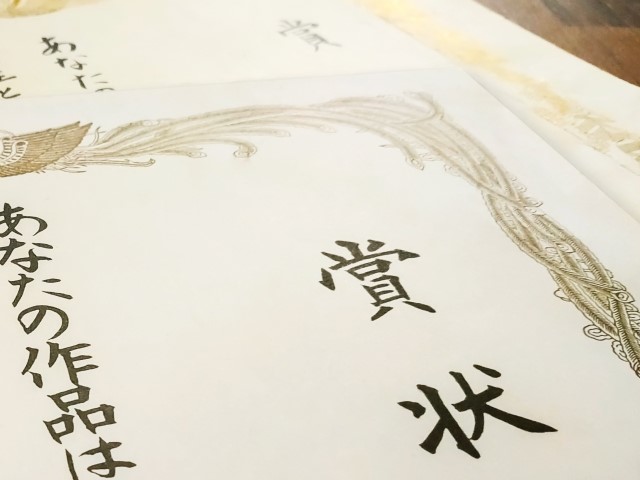 賞状
あなたの作品は
賞
あなた